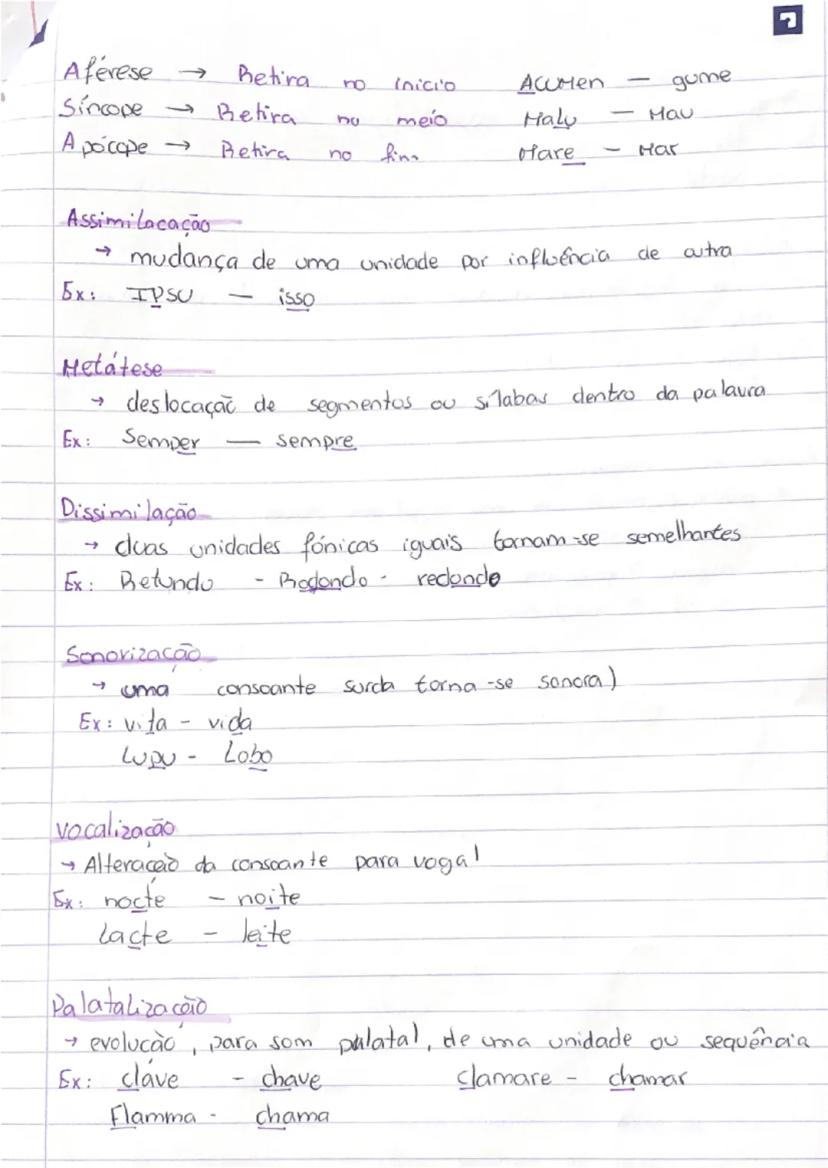 Aférese → Retira no início ACUMEN — gume
Síncope → Retira no meio Malu — Mau
Apócope → Retira no fim Mare — Mar
Assimilacação
→ mudança de uma unidade por influência de outra
Ex: IPSU — isso
Metátese
→ deslocação de segmentos ou sílabas dentro da palavra
Ex: Semper — sempre
Dissimilação
→ duas unidades fónicas iguais tornam-se semelhantes
Ex: Retundo - Rodondo - redondo
Sonorização
→ uma consoante surda torna-se sonora)
Ex: vita - vida
Lupu - Lobo
Vocalização
→ Alteração da consoante para vogal
Ex: nocte - noite
Lacte - leite
Palatalização
→ evolução, para som palatal, de uma unidade ou sequência
Ex: cláve - chave Clamare - chamar
Flamma - chama